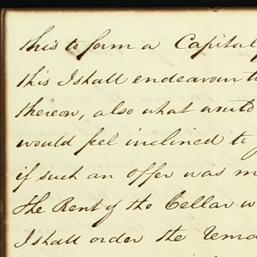 this to form a Capital
this I shall endeavour to
thereon, also what
would feel inclined to
if such an offer was
the Rent of the Cellar
I shall order the